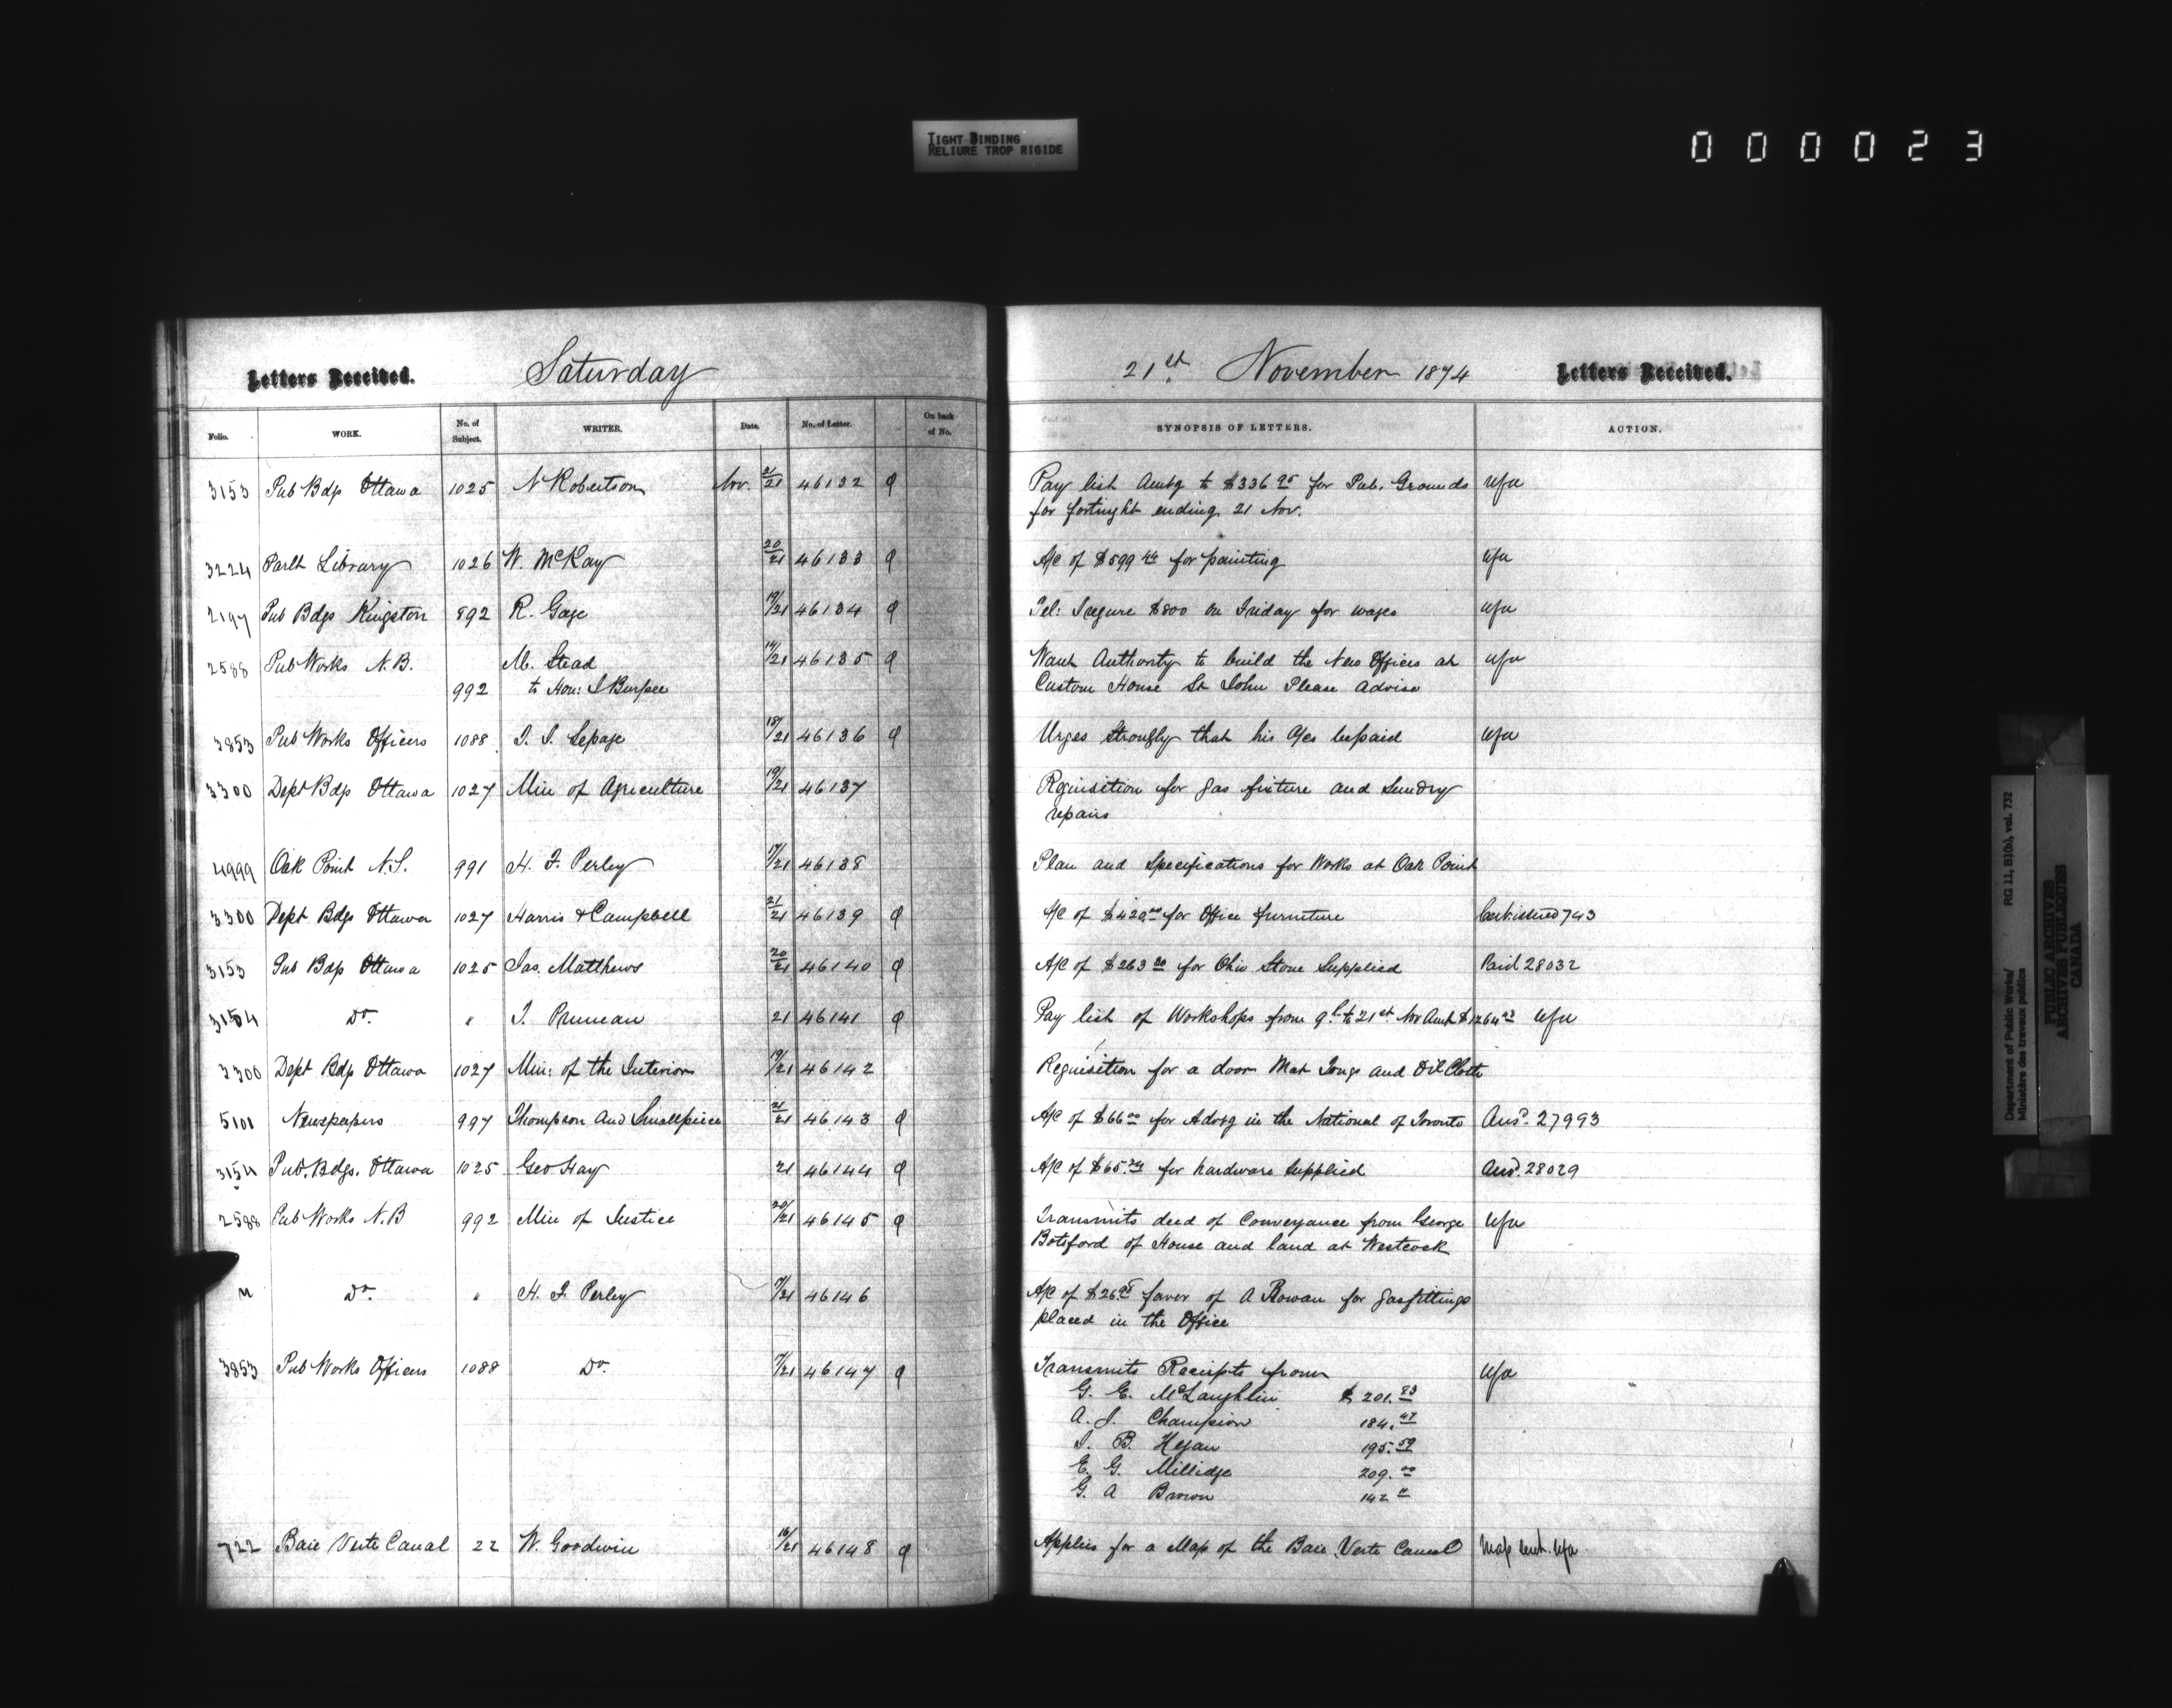 TIGHT BINDING
RELIURE TROP RIGIDE
000023
Letters Received. Saturday 21st. November 1874 Letters Received.
Folio. WORK. No. of Subject. WRITER. Date. No. of Letter. On back of No. SYNOPSIS OF LETTERS. ACTION.
3153 Pub Bdgs Ottawa 1025 N Robertson Nov. 21/21 46132 Pay list Amtg to $336 95 for Pub. Grounds
for fortnight ending 21 Nov.
3224 Parlt Library 1026 W. McKay 20/21 46133 A/C of $599 44 for painting
2197 Pub Bdgs Kingston 892 R. Gage 19/21 46134 Tel: I require $800 on Friday for wages
2588 Pub Works N.B. M. Stead 14/21 46135 Want Authority to build the New Offices at
992 to Hon: I Burpee Custom House St John Please advise
3853 Pub Works Officers 1088 46136 Urges Strongly that his a/cs be paid
3300 Dept Bdgs Ottawa 1027 Min of Agriculture 19/21 46137 Rquisition for gas fixture and Sundry
repairs
4999 Oak Point N.S. 991 H. F. Perley 17/21 46138 Plan and Specifications for Works at Oak Point
3300 Dept Bdgs Ottawa 1027 Harris & Campbell 21/21 46139 A/C of $420.00 for Office furniture Cert issued 743
3153 Pub Bdgs Ottawa 1025 Jas. Matthews 20/21 46140 A/C of $263 for Ohio Stone Supplied Paid 28032
3154 Do. " 21 46141 Pay list of Workshops from 9th to 21st Nov Amt $1264
3300 Dept Bdgs Ottawa 1027 Min: of the Interior 19/21 46142 Requisition for a door Mat Tongs and Oil Cloth
5101 Newspapers 997 Thompson and Smallpiece 21/21 46143 A/C of $66 00 for Advtg in the National of Toronto Ansd. 27993
3154 Pub. Bdgs. Ottawa 1025 Geo Hay 21 46144 A/C of $65. for hardware Supplied Ansd. 28029
2588 Pub Works N.B 992 Min of Justice 20/21 46145 Transmits deed of Conveyance from George
Botsford of House and land at Westcock
" Do. " H. F. Perley 17/21 46146 A/C of $26 favor of A Rowan for gasfittings
placed in the Office
3853 Pub Works Officers 1088 Do. 17/21 46147 Transmits Receipts from
G. E. McLaughlin $ 201.83
A. J. Champion 184.47
J. B. Hegan 195.59
E. G. Millidge 209.00
G. A Brown 142
722 Baie Verte Canal 22 W. Goodwin 16/21 46148 Applies for a Map of the Baie Verte Canal Map sent.
Department of Public Works/
Ministère des travaux publics
RG 11, B1(b), vol. 732
PUBLIC ARCHIVES
ARCHIVES PUBLIQUES
CANADA